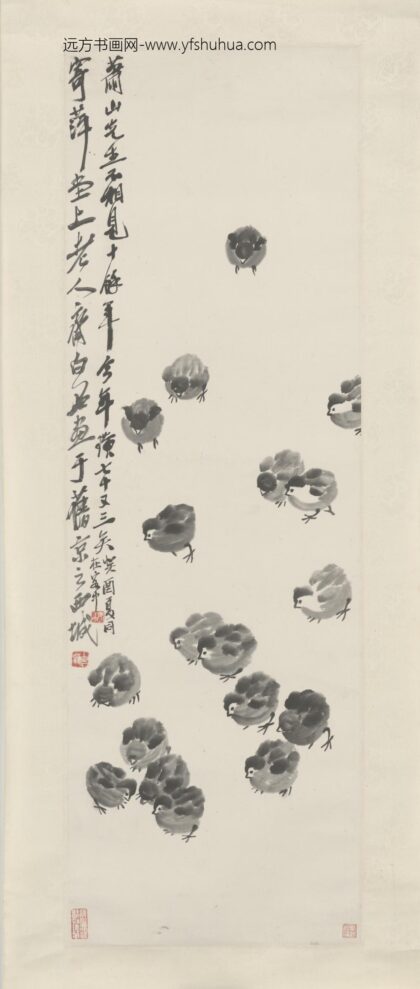 远方书画网-www.yfshuhua.com
寄萍堂上老人齐白石画于旧京之西城
萧山先生不相见十余年今年璜七十又三矣癸酉夏同在客中